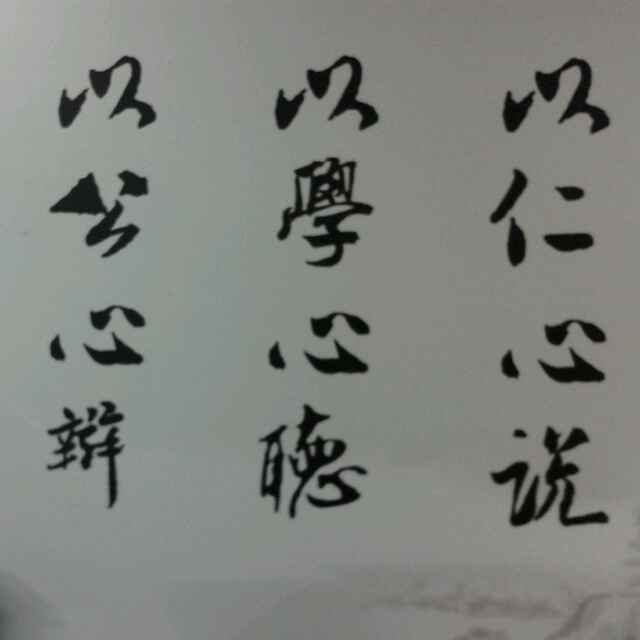 以仁心说
以學心聽
以公心辩